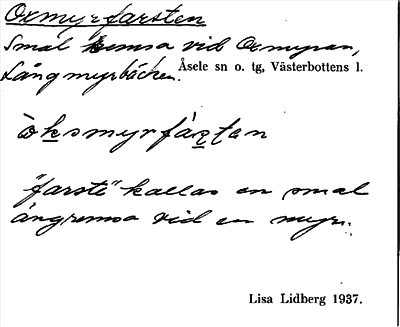 Oxmyrfarsten
Smal remsa vid Oxmyran,
Långmyrbäcken.
Åsele sn o. tg, Västerbottens l.
òk̠smyrfàʂt̠en
"farste" kallas en smal
ängremsa vid en myr.
Lisa Lidberg 1937.